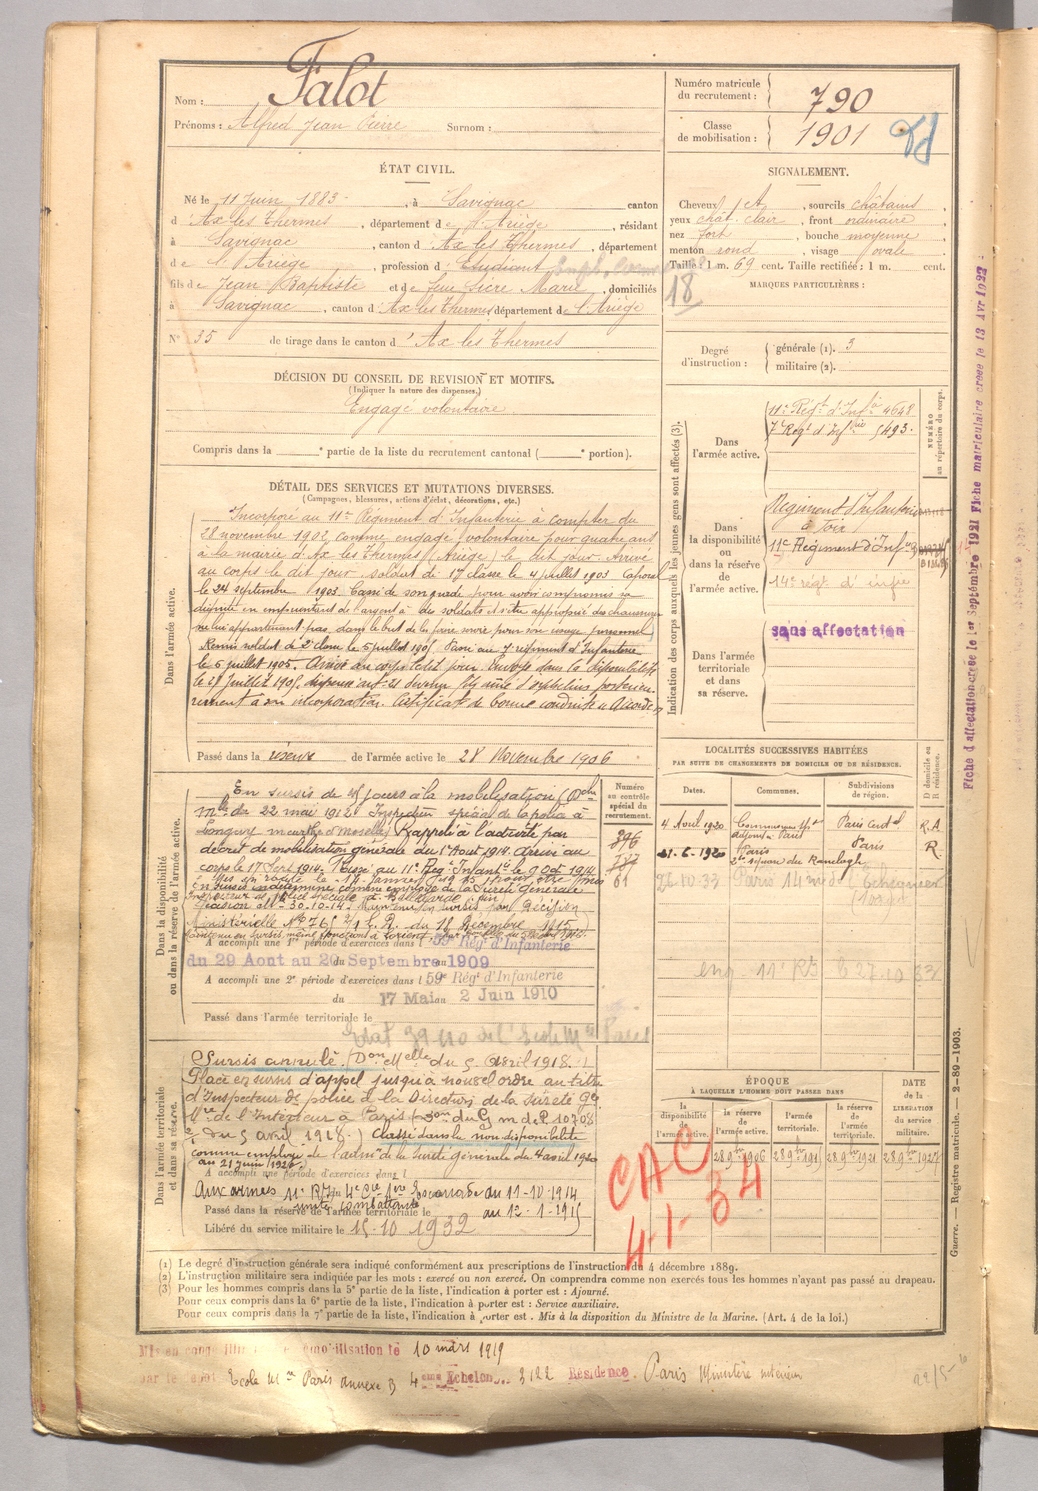 Nom : Falot
Prénoms : Alfred Jean Pierre Surnom :
Numéro matricule du recrutement : 790
Classe de mobilisation : 1901
ÉTAT CIVIL.
Né le 11 Juin 1883, à Savignac canton
d'Ax les Thermes, département de l'Ariège, résidant
à Savignac, canton d'Ax les Thermes, département
de l'Ariège, profession d'Etudiant
fils de Jean Baptiste et de Marie, domiciliés
à Savignac, canton d'Ax les Thermes département de l'Ariège
N° 35 de tirage dans le canton d'Ax les Thermes
SIGNALEMENT.
Cheveux et, sourcils châtains,
yeux chât. clair, front ordinaire
nez fort, bouche moyenne
menton rond, visage ovale
Taille : 1 m. 69 cent. Taille rectifiée : 1 m. cent.
MARQUES PARTICULIÈRES :
18
Degré d'instruction : générale (1). 3
militaire (2).
DÉCISION DU CONSEIL DE REVISION ET MOTIFS.
(Indiquer la nature des dispenses.)
Engagé volontaire
Compris dans la e partie de la liste du recrutement cantonal ( e portion).
DÉTAIL DES SERVICES ET MUTATIONS DIVERSES.
(Campagnes, blessures, actions d'éclat, décorations, etc.)
Dans l'armée active.
Incorporé au 11e Régiment d'Infanterie à compter du
28 novembre 1902, comme engagé volontaire pour quatre ans
à la mairie d'Ax les Thermes (Ariège) le dit jour. Arrivé
au corps le dit jour soldat de 2e classe le 4 juillet 1903 Caporal
le 24 septembre 1903. Cassé de son grade pour avoir compromis sa
dignité en empruntant de l'argent à des soldats et s'être approprié des chaussures
ne lui appartenant pas, dans le but de les faire servir pour son usage personnel
Remis soldat de 2e classe le 5 juillet 1905 Passé au 7e régiment d'Infanterie
le 6 juillet 1905. Arrivé au corps le dit jour. Envoyé dans la disponibilité
le 27 Juillet 1905, dispensé art. 21 devenu fils aîné d'orphelins postérieu-
rement à son incorporation. Certificat de bonne conduite Accordé
Passé dans la réserve de l'armée active le 28 Novembre 1906
Indication des corps auxquels les jeunes gens sont affectés (3).
NUMÉRO au répertoire du corps.
Dans l'armée active.
11e Régt d'Infie 4648
7e Régt d'Infie 5493.
Dans la disponibilité ou dans la réserve de l'armée active.
Régiment d'Infanterie
à Foix
11e Régiment d'Infie
14e régt d'infie
sans affectation
Dans l'armée territoriale et dans sa réserve.
Fiche d'affectation créée le 1er Septembre 1921 Fiche matriculaire créée le 13 Avr 1922
Dans la disponibilité ou dans la réserve de l'armée active.
En sursis de 45 jours à la mobilisation (Don
Mlle du 22 mai 1912. Inspecteur spécial de la police à
Longwy meurthe et Moselle) Rappelé à l'activité par
décret de mobilisation générale du 1er Août 1914. Arrivé au
corps le 17 Sept 1914. Passé au 11e Régt Infantie le 9 Oct. 1914.
en sursis indéterminé comme employé de la Sûreté Générale
Décision du 30.10.14. Maintenu en sursis par Décision
Ministérielle N° 765 du 18 Décembre 1915
Numéro au contrôle spécial du recrutement.
396
787
61
A accompli une 1re période d'exercices dans l 59e Régt d'Infanterie
du 29 Aout au 20 Septembre 1909
A accompli une 2e période d'exercices dans l 59e Régt d'Infanterie
du 17 Mai au 2 Juin 1910
Passé dans l'armée territoriale le
LOCALITÉS SUCCESSIVES HABITÉES
PAR SUITE DE CHANGEMENTS DE DOMICILE OU DE RÉSIDENCE.
Dates. Communes. Subdivisions de région. D domicile ou R résidence.
4 Avril 1920 Commissaire adjoint à Paris Paris Central R.A
21-6-1920 Paris 2 square du Ranelagh Paris R.
26.10.33 Paris 14
Dans l'armée territoriale et dans sa réserve.
Sursis annulé. Don Mlle du 5 Avril 1918.
Placé en sursis d'appel jusqu'à nouvel ordre au titre
d'Inspecteur de police à la Direction de la Sûreté Gle
Mre de l'Intérieur à Paris 10708
du 5 avril 1918.) Classé dans la non disponibilité
comme employé de l'admn de la Sûreté générale du 4 avril 1920
au 21 juin 1926.
A accompli une période d'exercices dans l
Aux armées 11e RI au 11-10-1914
unité combattante au 12-1-1915
Passé dans la réserve de l'armée territoriale le
Libéré du service militaire le 15-10 1932
ÉPOQUE
À LAQUELLE L'HOMME DOIT PASSER DANS
la disponibilité de l'armée active. la réserve de l'armée active. l'armée territoriale. la réserve de l'armée territoriale.
DATE de la LIBÉRATION du service militaire.
28 9bre 1906 28 9bre 1915 28 9bre 1921 28 9bre 1927
CAC
4-1-34
Guerre. — Registre matricule. — 2-89-1903.
(1) Le degré d'instruction générale sera indiqué conformément aux prescriptions de l'instruction du 4 décembre 1889.
(2) L'instruction militaire sera indiquée par les mots : exercé ou non exercé. On comprendra comme non exercés tous les hommes n'ayant pas passé au drapeau.
(3) Pour les hommes compris dans la 5e partie de la liste, l'indication à porter est : Ajourné.
Pour ceux compris dans la 6e partie de la liste, l'indication à porter est : Service auxiliaire.
Pour ceux compris dans la 7e partie de la liste, l'indication à porter est : Mis à la disposition du Ministre de la Marine. (Art. 4 de la loi.)
Mis en congé illimité de démobilisation le 10 mars 1919
par le dépôt Ecole Mre Paris annexe B 4eme Echelon. 3122 Résidence. Paris Ministère intérieur